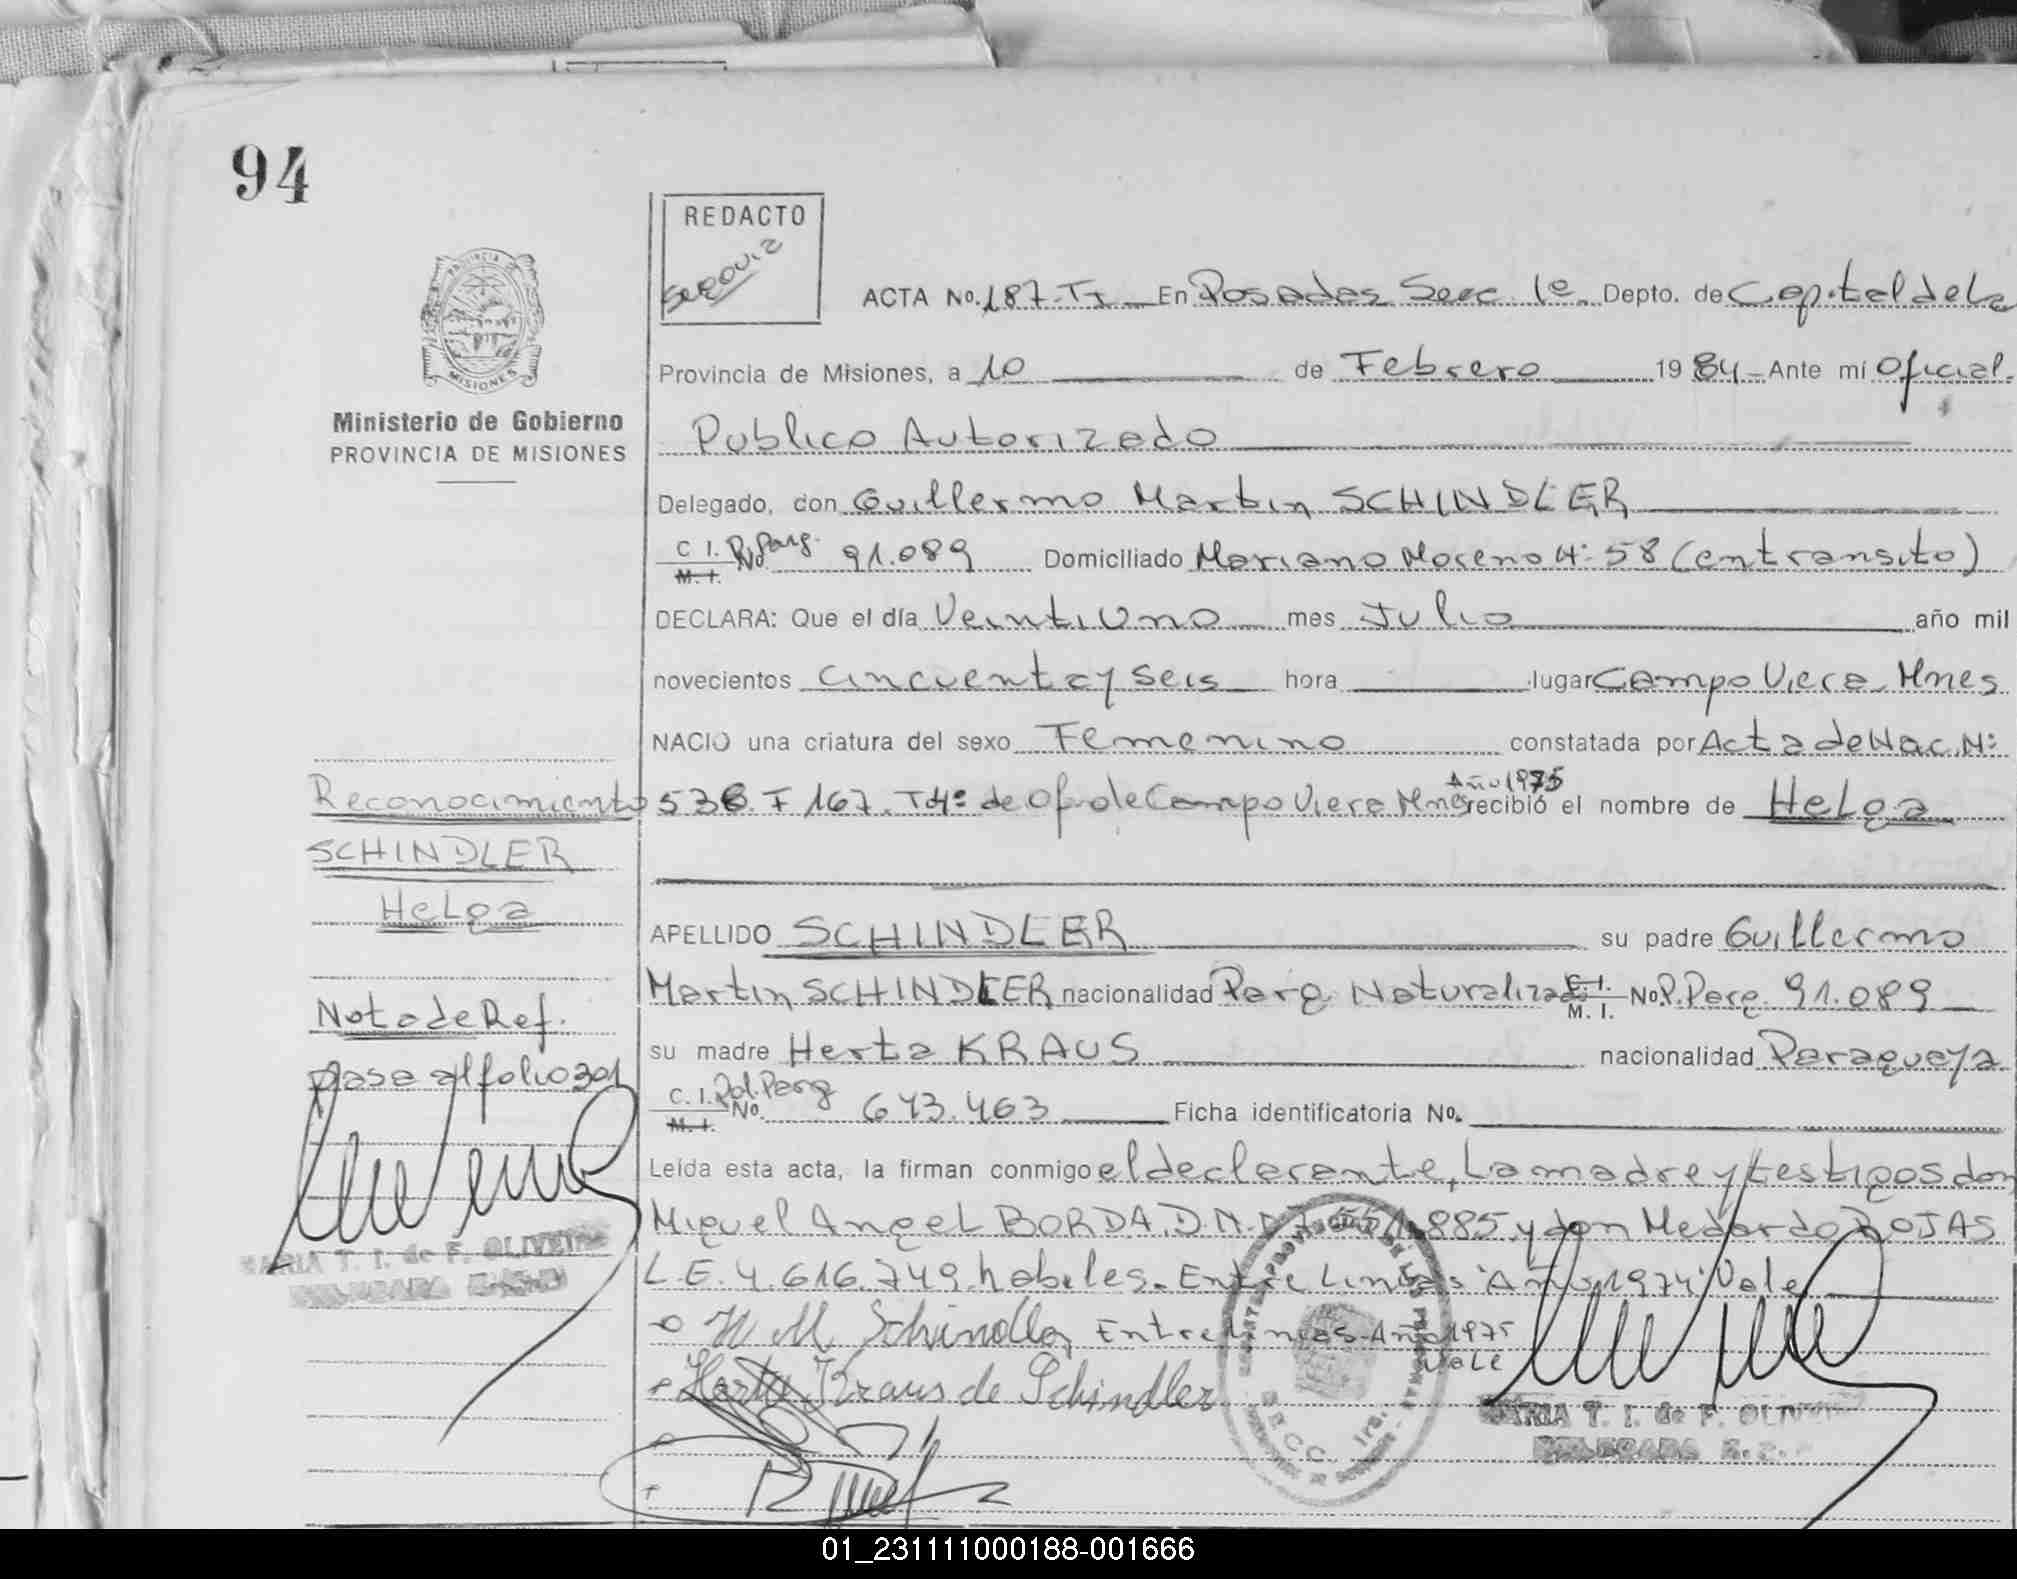 94
REDACTO
PROVINCIA DE
MISIONES
Ministerio de Gobierno
PROVINCIA DE MISIONES
ACTA No. 187. TI En Posadas Secc 1a. Depto. de Capital de la
Provincia de Misiones, a 10 de Febrero 1984 - Ante mí Oficial
Publico Autorizado
Delegado, con Guillermo Martin SCHINDLER
C I. M. I. No. P. Parg. 91.089 Domiciliado Mariano Moreno Nº 58 (en transito)
DECLARA: Que el día Veintiuno mes Julio año mil
novecientos cincuenta y seis hora lugar Campo Viera Mnes
NACIÓ una criatura del sexo Femenino constatada por Acta de Nac. Nº
Año 1975
536. F 167. T 4º de Of. de Campo Viera Mnes recibió el nombre de Helga
APELLIDO SCHINDLER su padre Guillermo
Martin SCHINDLER nacionalidad Parg Naturalizado C. I. M. I. No. P. Parg. 91.089
su madre Herta KRAUS nacionalidad Paraguaya
C. I. M. I. No. Pol. Parg 643.463 Ficha identificatoria No.
Leída esta acta, la firman conmigo el declarante, la madre y testigos don
Miguel Angel BORDA. D.N.I 885 y don Medardo ROJAS
L.E. 4.616.749. habeles. Entre Lineas "Año 1974" Vale
W M Schindler Entre Lineas Año 1975
Vale
Herta Kraus de Schindler
Reconocimiento
SCHINDLER
Helga
Nota de Ref.
pase al folio 301
MARIA T. I. de F. OLIVEIRA
DELEGADA
MARIA T. I. de F. OLIVEIRA
DELEGADA
01_231111000188-001666